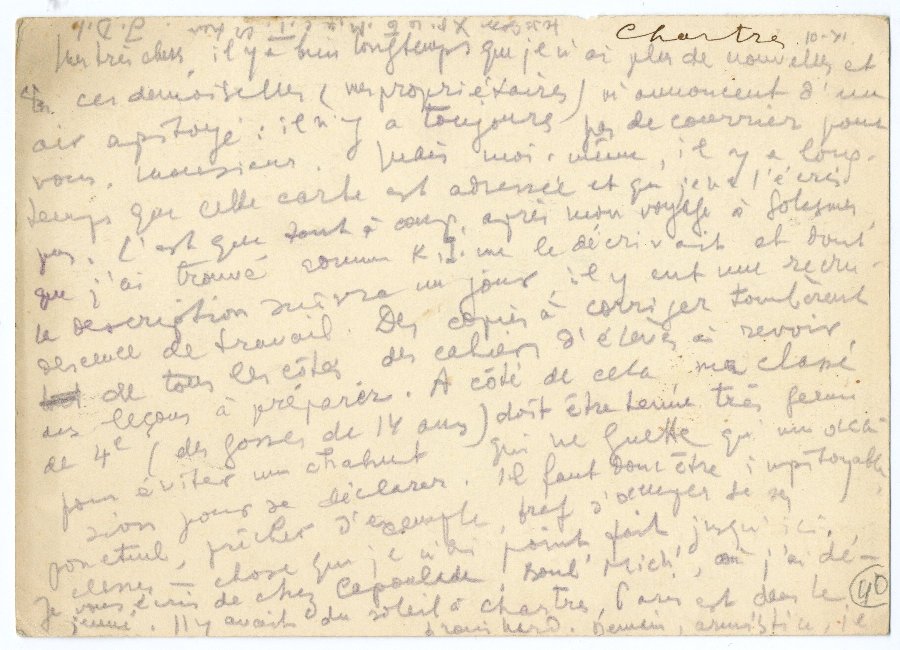 Chartres 10-XI
Mes très chers, il y a bien longtemps que je n'ai plus de nouvelles et
ces demoiselles (mes propriétaires) m'annoncent d'un
air apitoyé : il n'y a toujours pas de courrier pour
vous, monsieur. Mais moi-même, il y a long-
temps que cette carte est adressée et que je ne l'écris
pas. C'est que tout à coup, après mon voyage à Solesmes,
que j'ai trouvé comme K. me le décrivait et dont
la description suivra un jour, il y eut une recru-
descence de travail. Des copies à corriger tombèrent
de tous les côtés, des cahiers d'élèves à revoir
des leçons à préparer. A côté de cela ma classe
de 4e (des gosses de 14 ans) doit être tenue très ferme
pour éviter un chahut qui ne guette qu'une occa-
sion pour se déclarer. Il faut donc être impitoyable,
ponctuel, prêcher d'exemple, bref s'occuper de ses
classes — chose que je n'ai point fait jusqu'ici.
Je vous écris de chez Capoulade, Boul' Mich', où j'ai dé-
jeuné. Il y avait du soleil à Chartres, Paris est dans le
brouillard. Demain, armistice, je
40